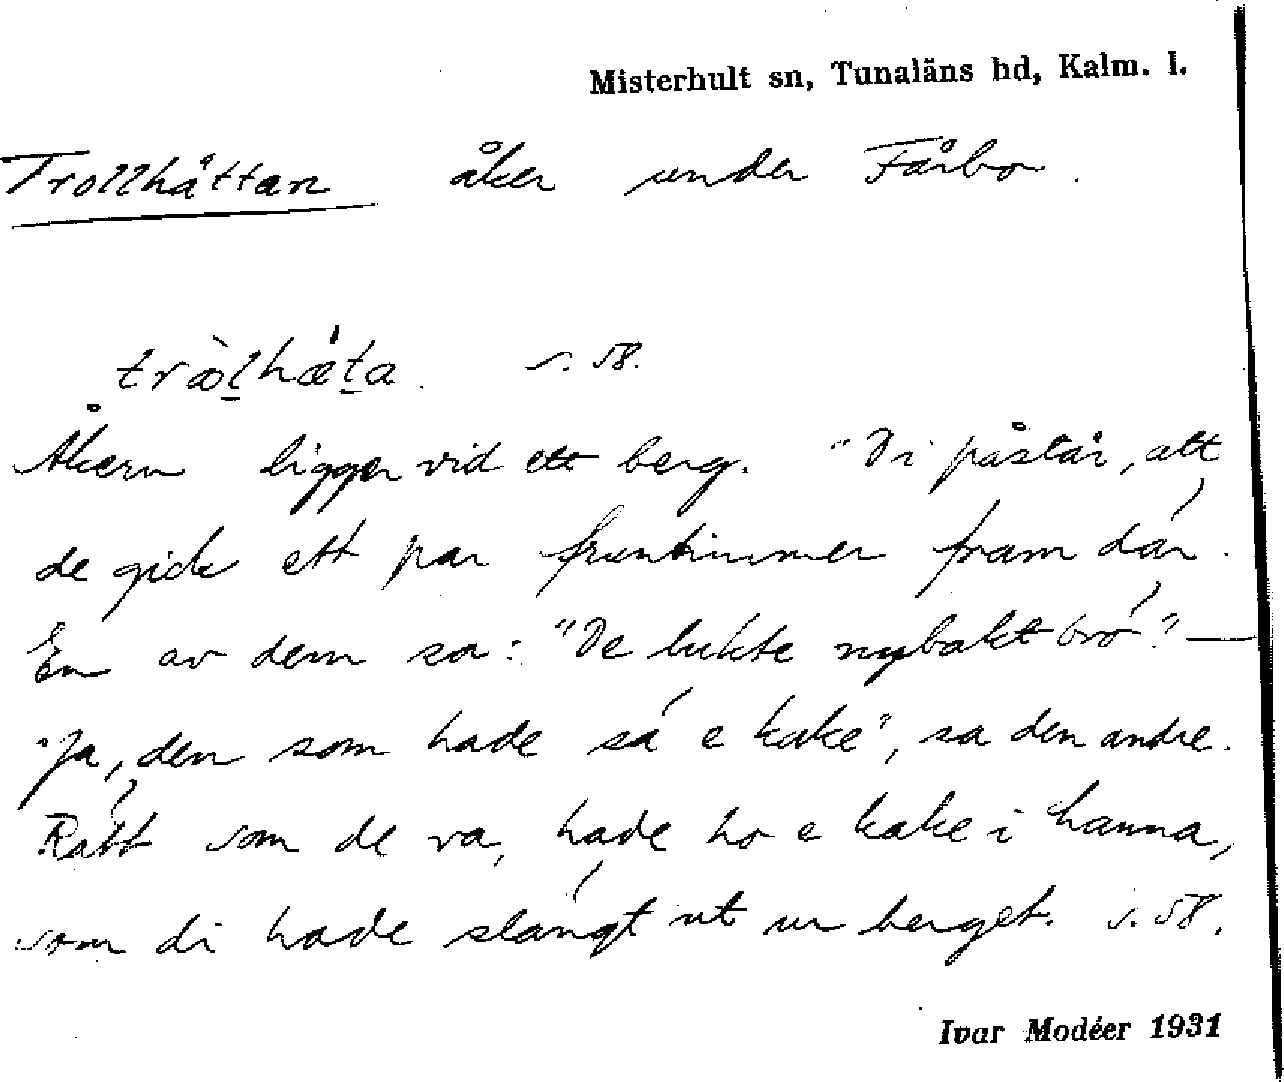 Misterhult sn, Tunaläns hd, Kalm. l.
Trollhättan åker under Fårbo.
tròlhǽta. s. 58.
Åkern ligger vid ett berg. "Di påstår, att
de gick ett par fruntimmer fram där.
En av dem sa: "De lukte nybakt brö". —
"Ja, den som hade så e kake", sa den andre.
Rätt som de va, hade ho e kake i hanna,
som di hade slängt ut ur berget. s. 58.
Ivar Modéer 1931